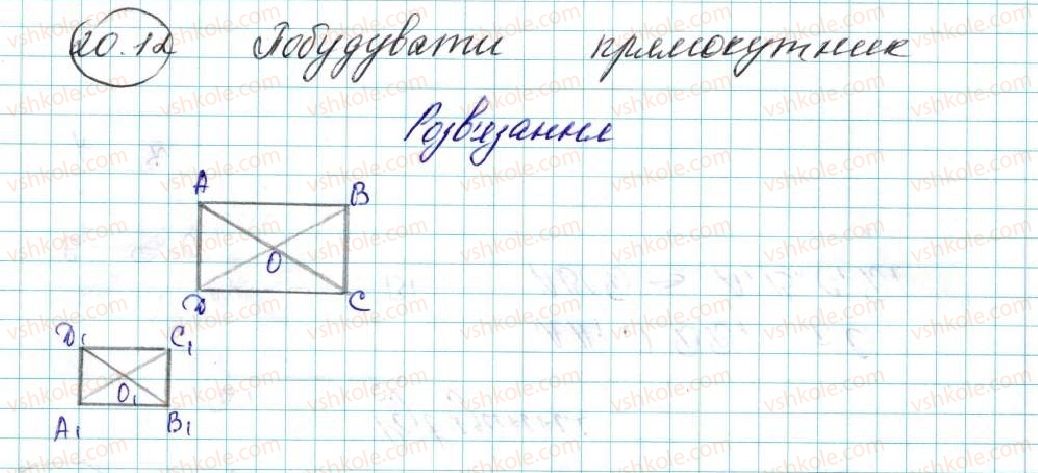 20.12 Побудувати прямокутник
Розв'язання
A B
O
D C
D₁ C₁
O₁
A₁ B₁
vshkole.com